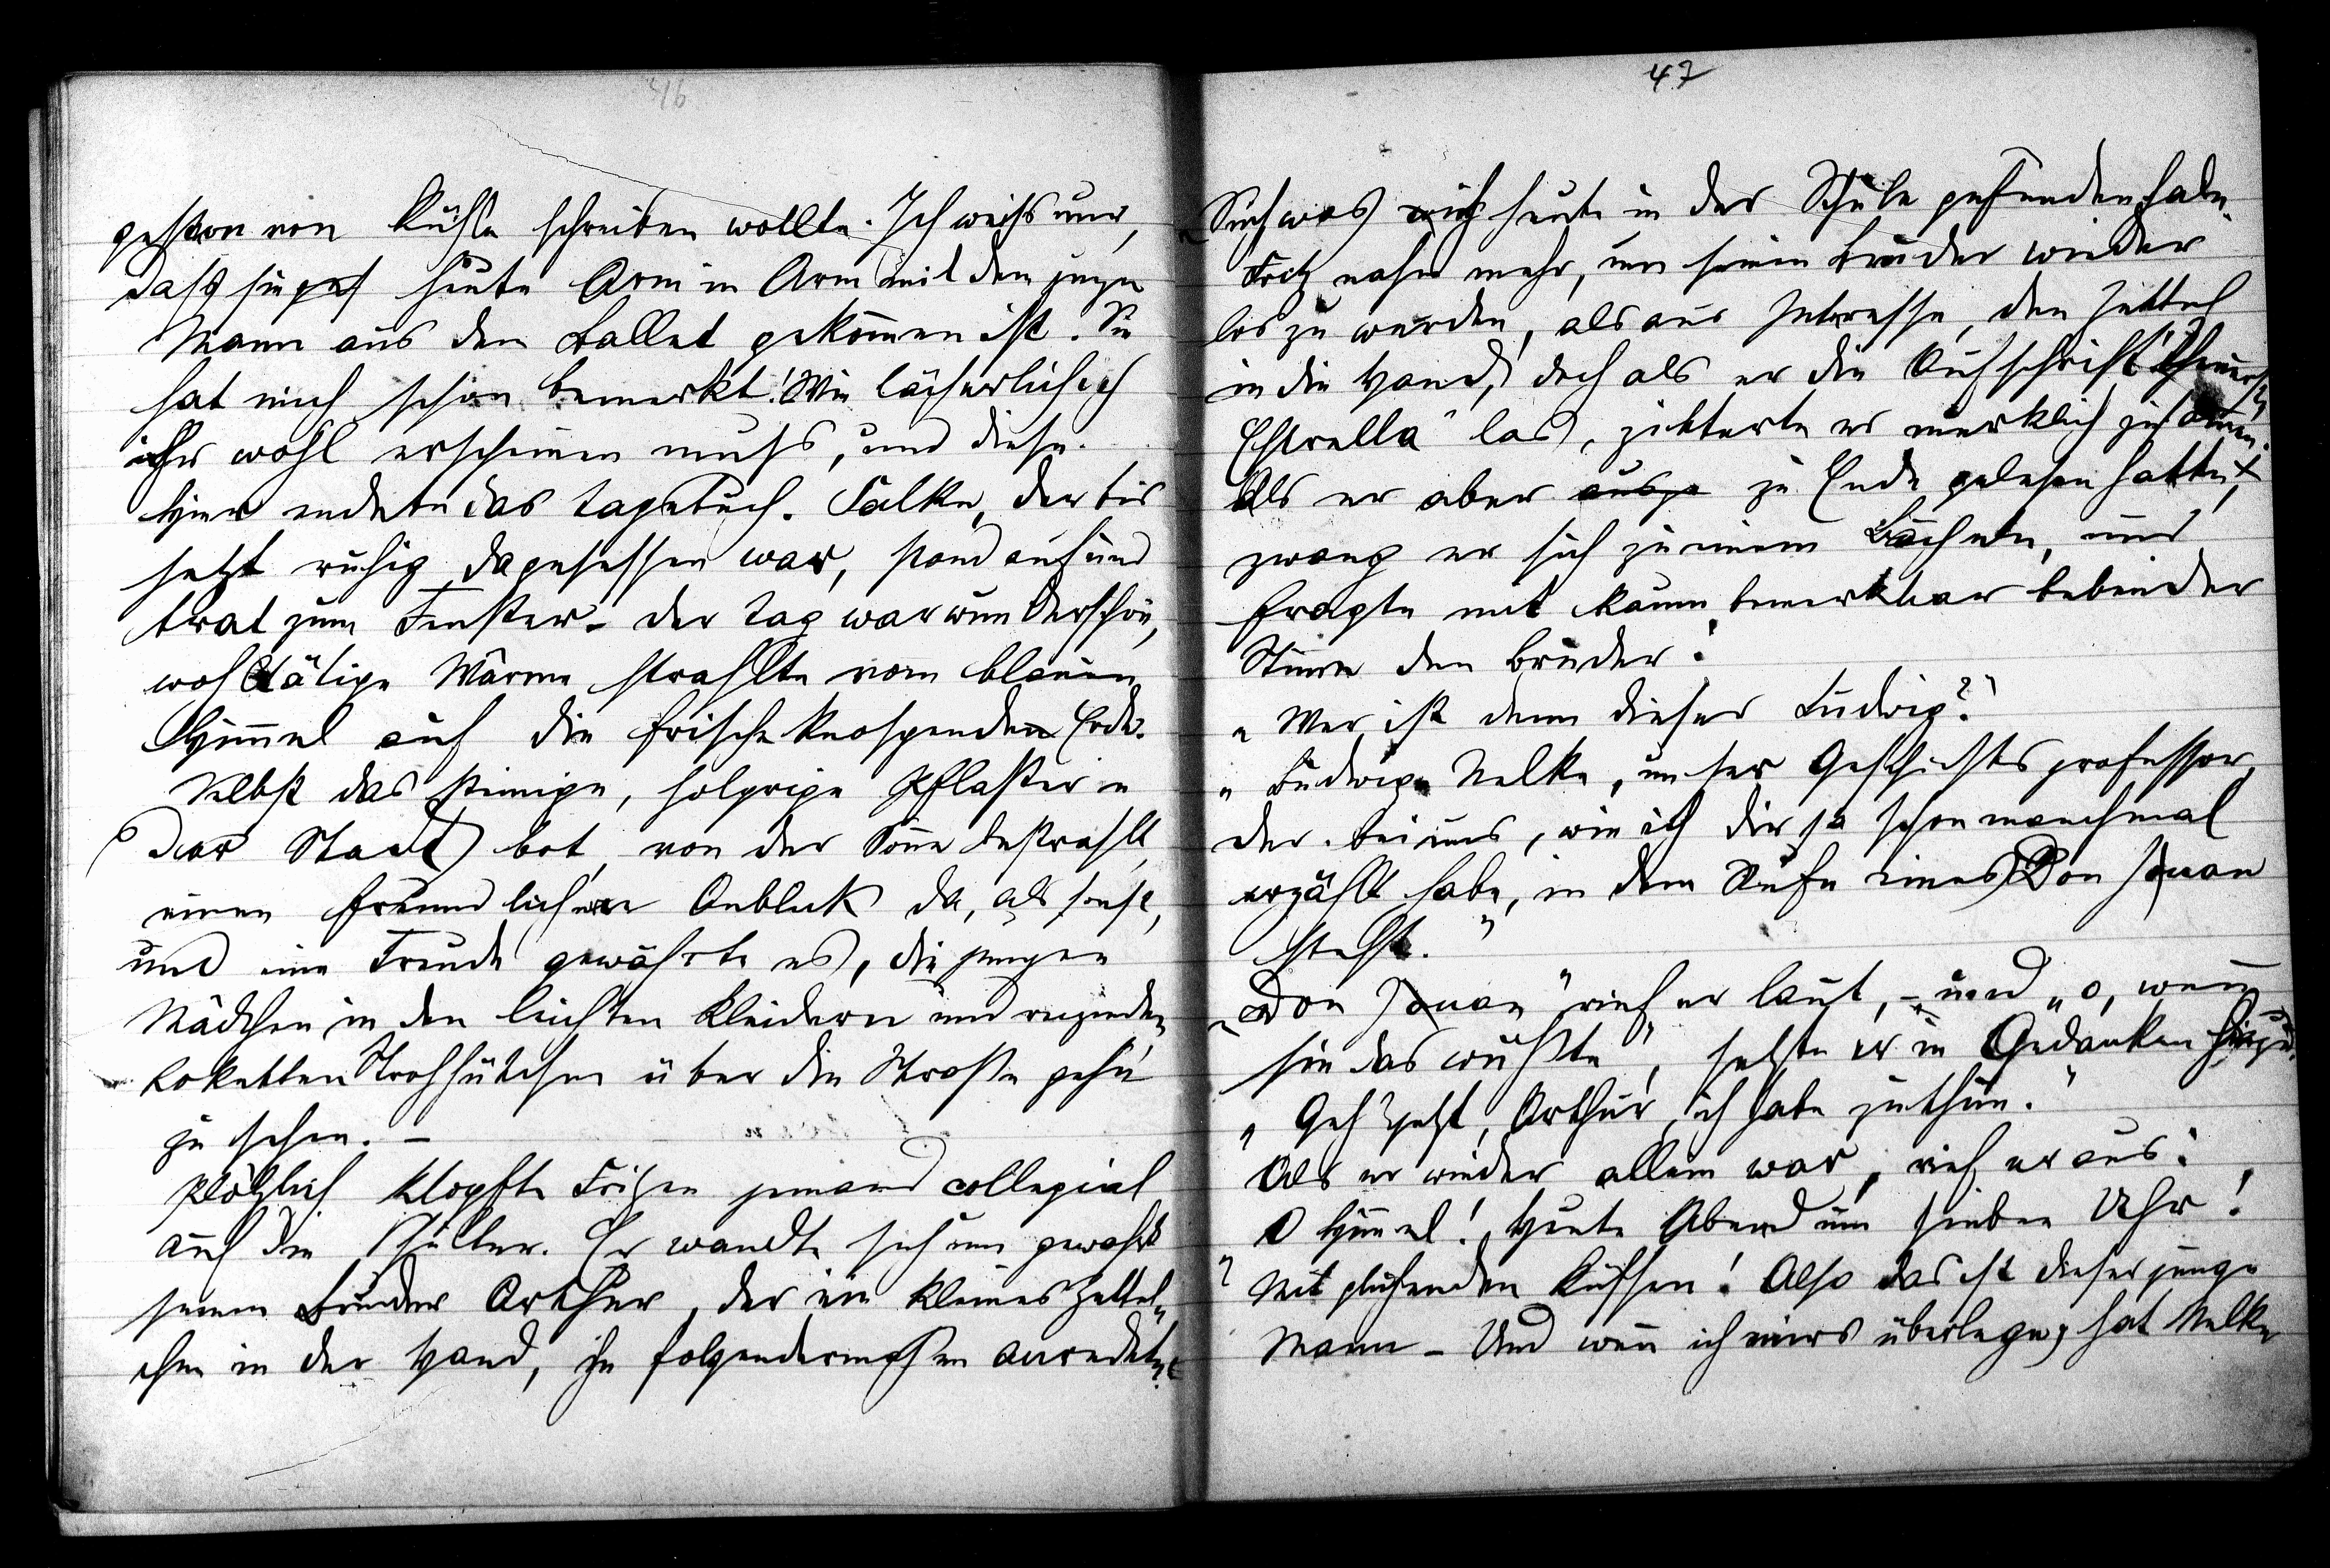 46
gestern von Küssen schreiben wollte. Ich weiß nur,
daß sie heute Arm in Arm mit dem jungen
Mann aus dem Ballet gekommen ist. Sie
hat mich schon bemerkt! Wie lächerlich ich
ihr wohl erscheinen muß, und diese.
Hier endete das Tagebuch. Falke, der bis
jetzt ruhig dagesessen war, stand auf und
trat zum Fenster – der Tag war wunderschön,
wohltätige Wärme strahlte vom blauen
Himmel auf die frische knospende Erde.
Selbst das steinige, holprige Pflaster
der Stadt bot, von der Sonne bestrahlt,
einen freundlicheren Anblick da, als sonst,
und eine Freude gewährte es, die jungen
Mädchen in den leichten Kleidern und reizenden,
koketten Strohhütchen über die Straße gehn
zu sehen. –
Plötzlich klopfte Fritzen jemand collegial
auf die Schulter. Er wandte sich um gewahrte
seinen Bruder Arthur, der ein kleines Zettel-
chen in der Hand, ihn folgendermaßen anredete:
47
„Sieh was ich heute in der Schule gefunden habe.
Fritz nahm mehr, um seinen Bruder wieder
los zu werden, als aus Interesse, den Zettel
in die Hand, doch als er die Aufschrift „Theuerste
Estrella" las, zitterte er merklich zusammen.
Als er aber ausge zu Ende gelesen hatte,
zwang er sich zu einem Lächeln, und
fragte mit kaum bemerkbar bebender
Stimme den Bruder:
„Wer ist denn dieser Ludwig?"
„Ludwig Nelke, unser Geschichtsprofessor,
der bei uns, wie ich dir ja schon manchmal
erzählt habe, in dem Rufe eines Don Juan
steht."
„Don Juan" rief er laut, – und „o, wenn
sie das wüßte", setzte er in Gedanken hinzu.
„Geh jetzt, Arthur, ich habe zu thun."
Als er wieder allein war, rief er aus:
O Himmel! Heute Abend um sieben Uhr!
Mit glühenden Küssen! Also das ist dieser junge
Mann – Und wenn ich mirs überlege, hat Nelke